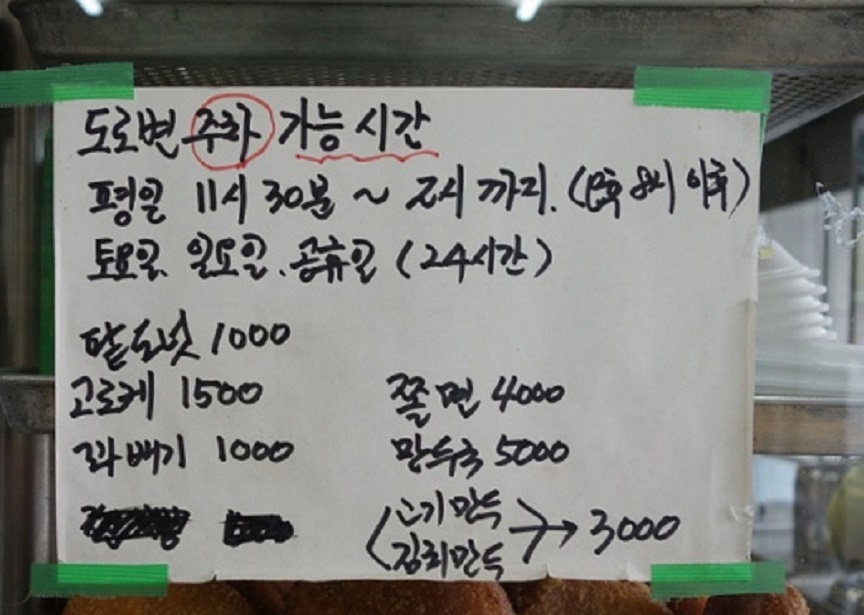 도로변 주차 가능 시간
평일 11시 30분 ~ 2시 까지. (오후 8시 이후)
토요일. 일요일. 공휴일 (24시간)
팥도넛 1000
고로케 1500
꽈배기 1000
쫄면 4000
만두국 5000
(고기만두
김치만두 → 3000